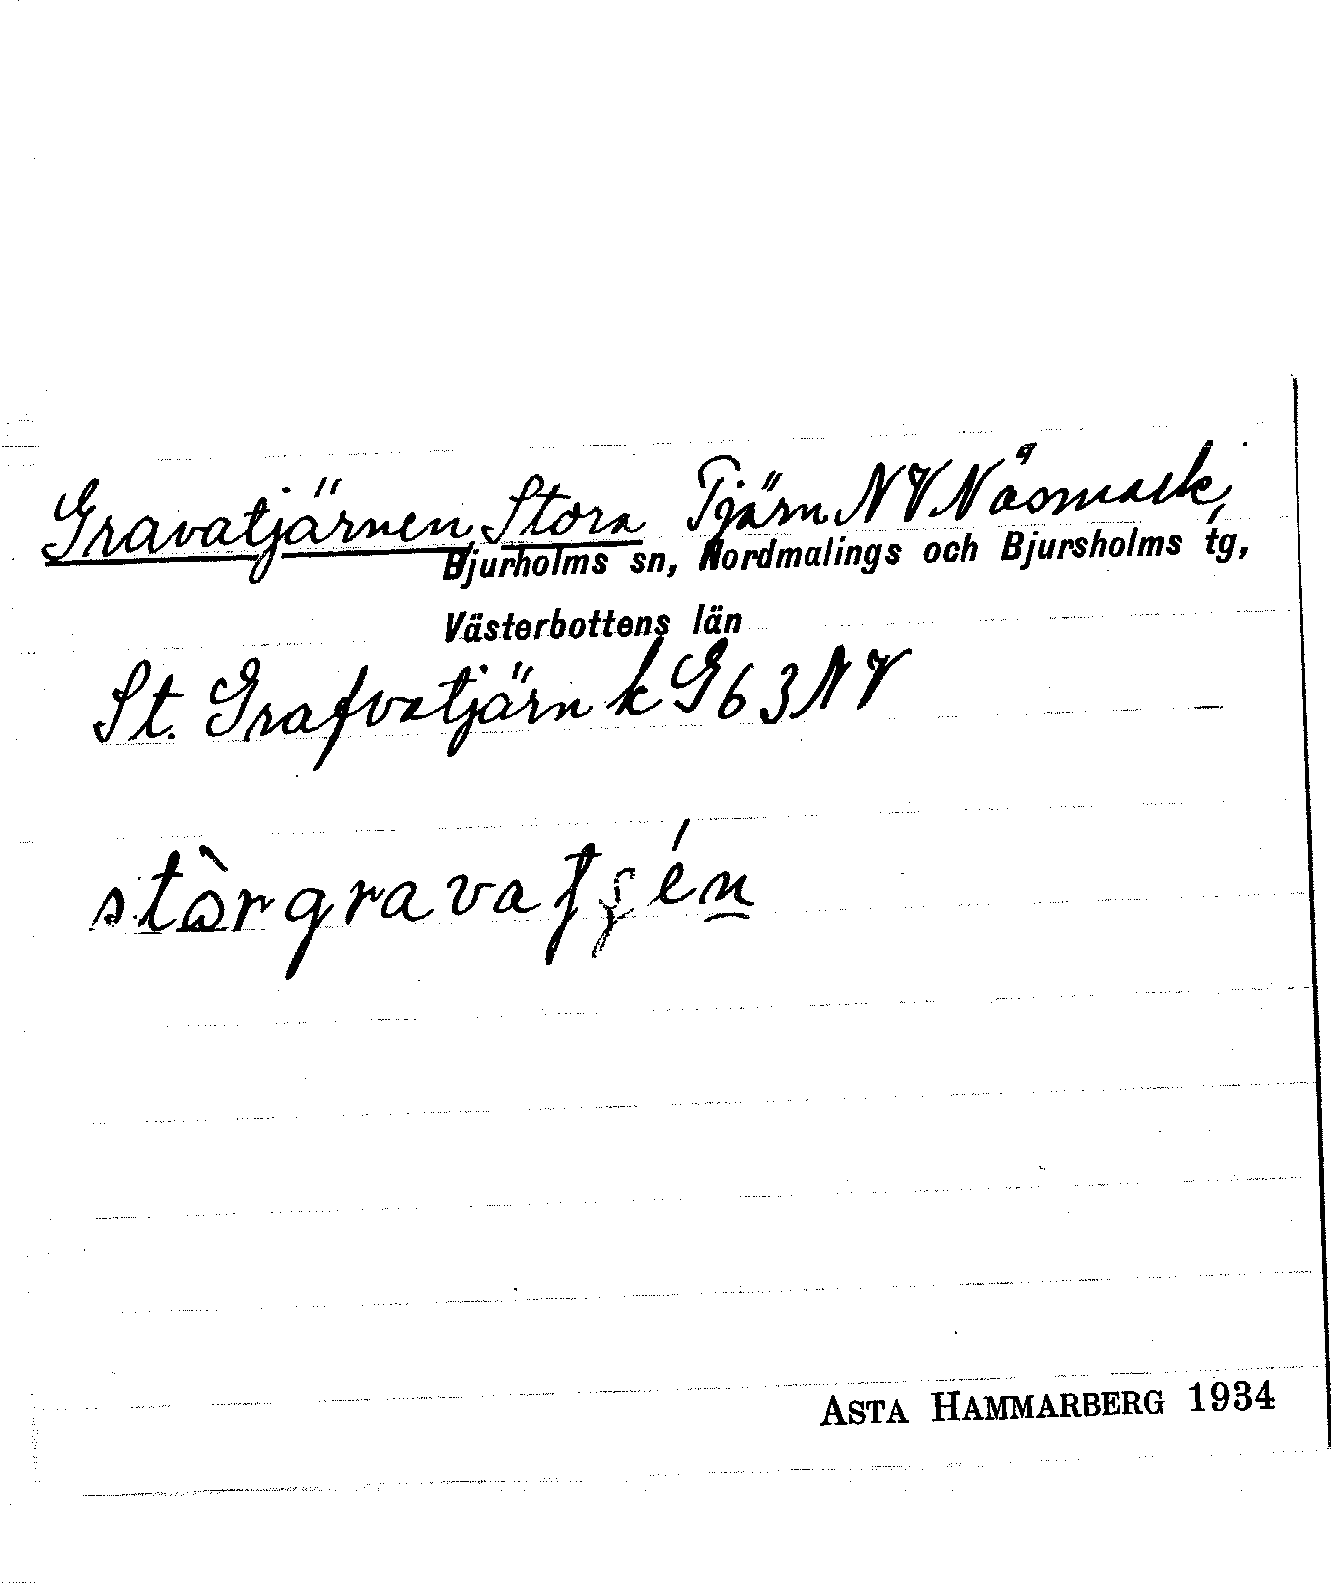 Gravatjärnen, Stora Tjärn NV Nåsmark,
Bjurholms sn, Nordmalings och Bjursholms tg,
Västerbottens län
St. Grafvatjärn k G 63 NV
ASTA HAMMARBERG 1934